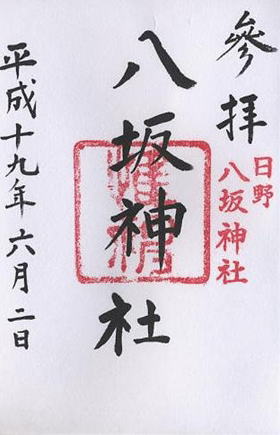 參拝
日野
八坂神社
八坂神社
平成十九年六月二日